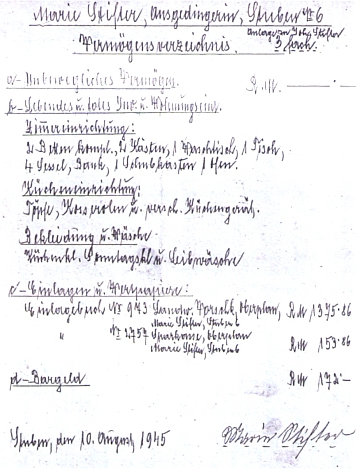 Marie Stifter, Ausgedingerin, Stuben № 6
Anlage zu Joh. Stifter
Vermögensverzeichnis.
a- Unbewegliches Vermögen. R.M. —·—
b- Lebendes u. totes Inv. u. Wohnungseinr.
Zimmereinrichtung:
2 Betten kompl., 2 Kästen, 1 Waschtisch, 1 Tisch,
4 Sessel, Bank, 1 Schubkasten 1 Ofen.
Kücheneinrichtung:
Töpfe, Kasserolen u. versch. Küchengerät.
Bekleidung u. Wäsche
Sonntagskl. u. Leibwäsche
c- Einlagen u. Wertpapiere:
Einlagebuch № 943 Landw. Vorschk. Oberplan, R.M 1375·86
Marie Stifter, Stuben 6
" № 2757 Sparkasse, Oberplan R.M 153·86
Marie Stifter, Stuben 6
d- Bargeld R.M 172–
Stuben, den 10. August 1945 Marie Stifter